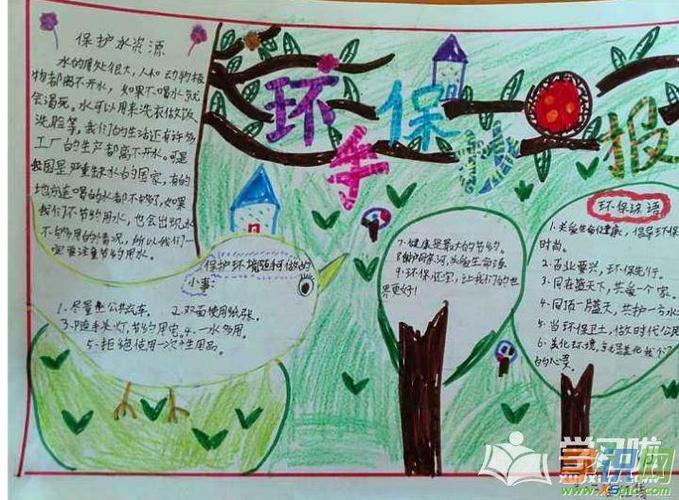 保护水资源
水的用处很大,人和动物植
物都离不开水,如果不喝水就
会渴死。水可以用来洗衣做饭
洗脸等,我们的生活还有许多
工厂的生产都离不开水。可是
我国是严重缺水的国家,有的
地方连喝的水都不够,如果
我们不节约用水,也会出现水
不够用的情况,所以我们一
定要注意节约用水。
环保手抄报
保护环境随时可做的
小事
1、尽量坐公共汽车。 2、双面使用纸张。
3、随手关灯,节约用电 4、一水多用。
5、拒绝使用一次性用品。
7、健康是最大的节约。
9、环保还宝,让我们的世
界更好!
环保标语
1、关爱生命健康,倡导环保
时尚。
2、百业要兴,环保先行。
3、同在蓝天下,共爱一个家。
4、同顶一片蓝天,共护一方水
5、当环保卫士,做时代公民
6、美化环境,
的心灵。
学习啦